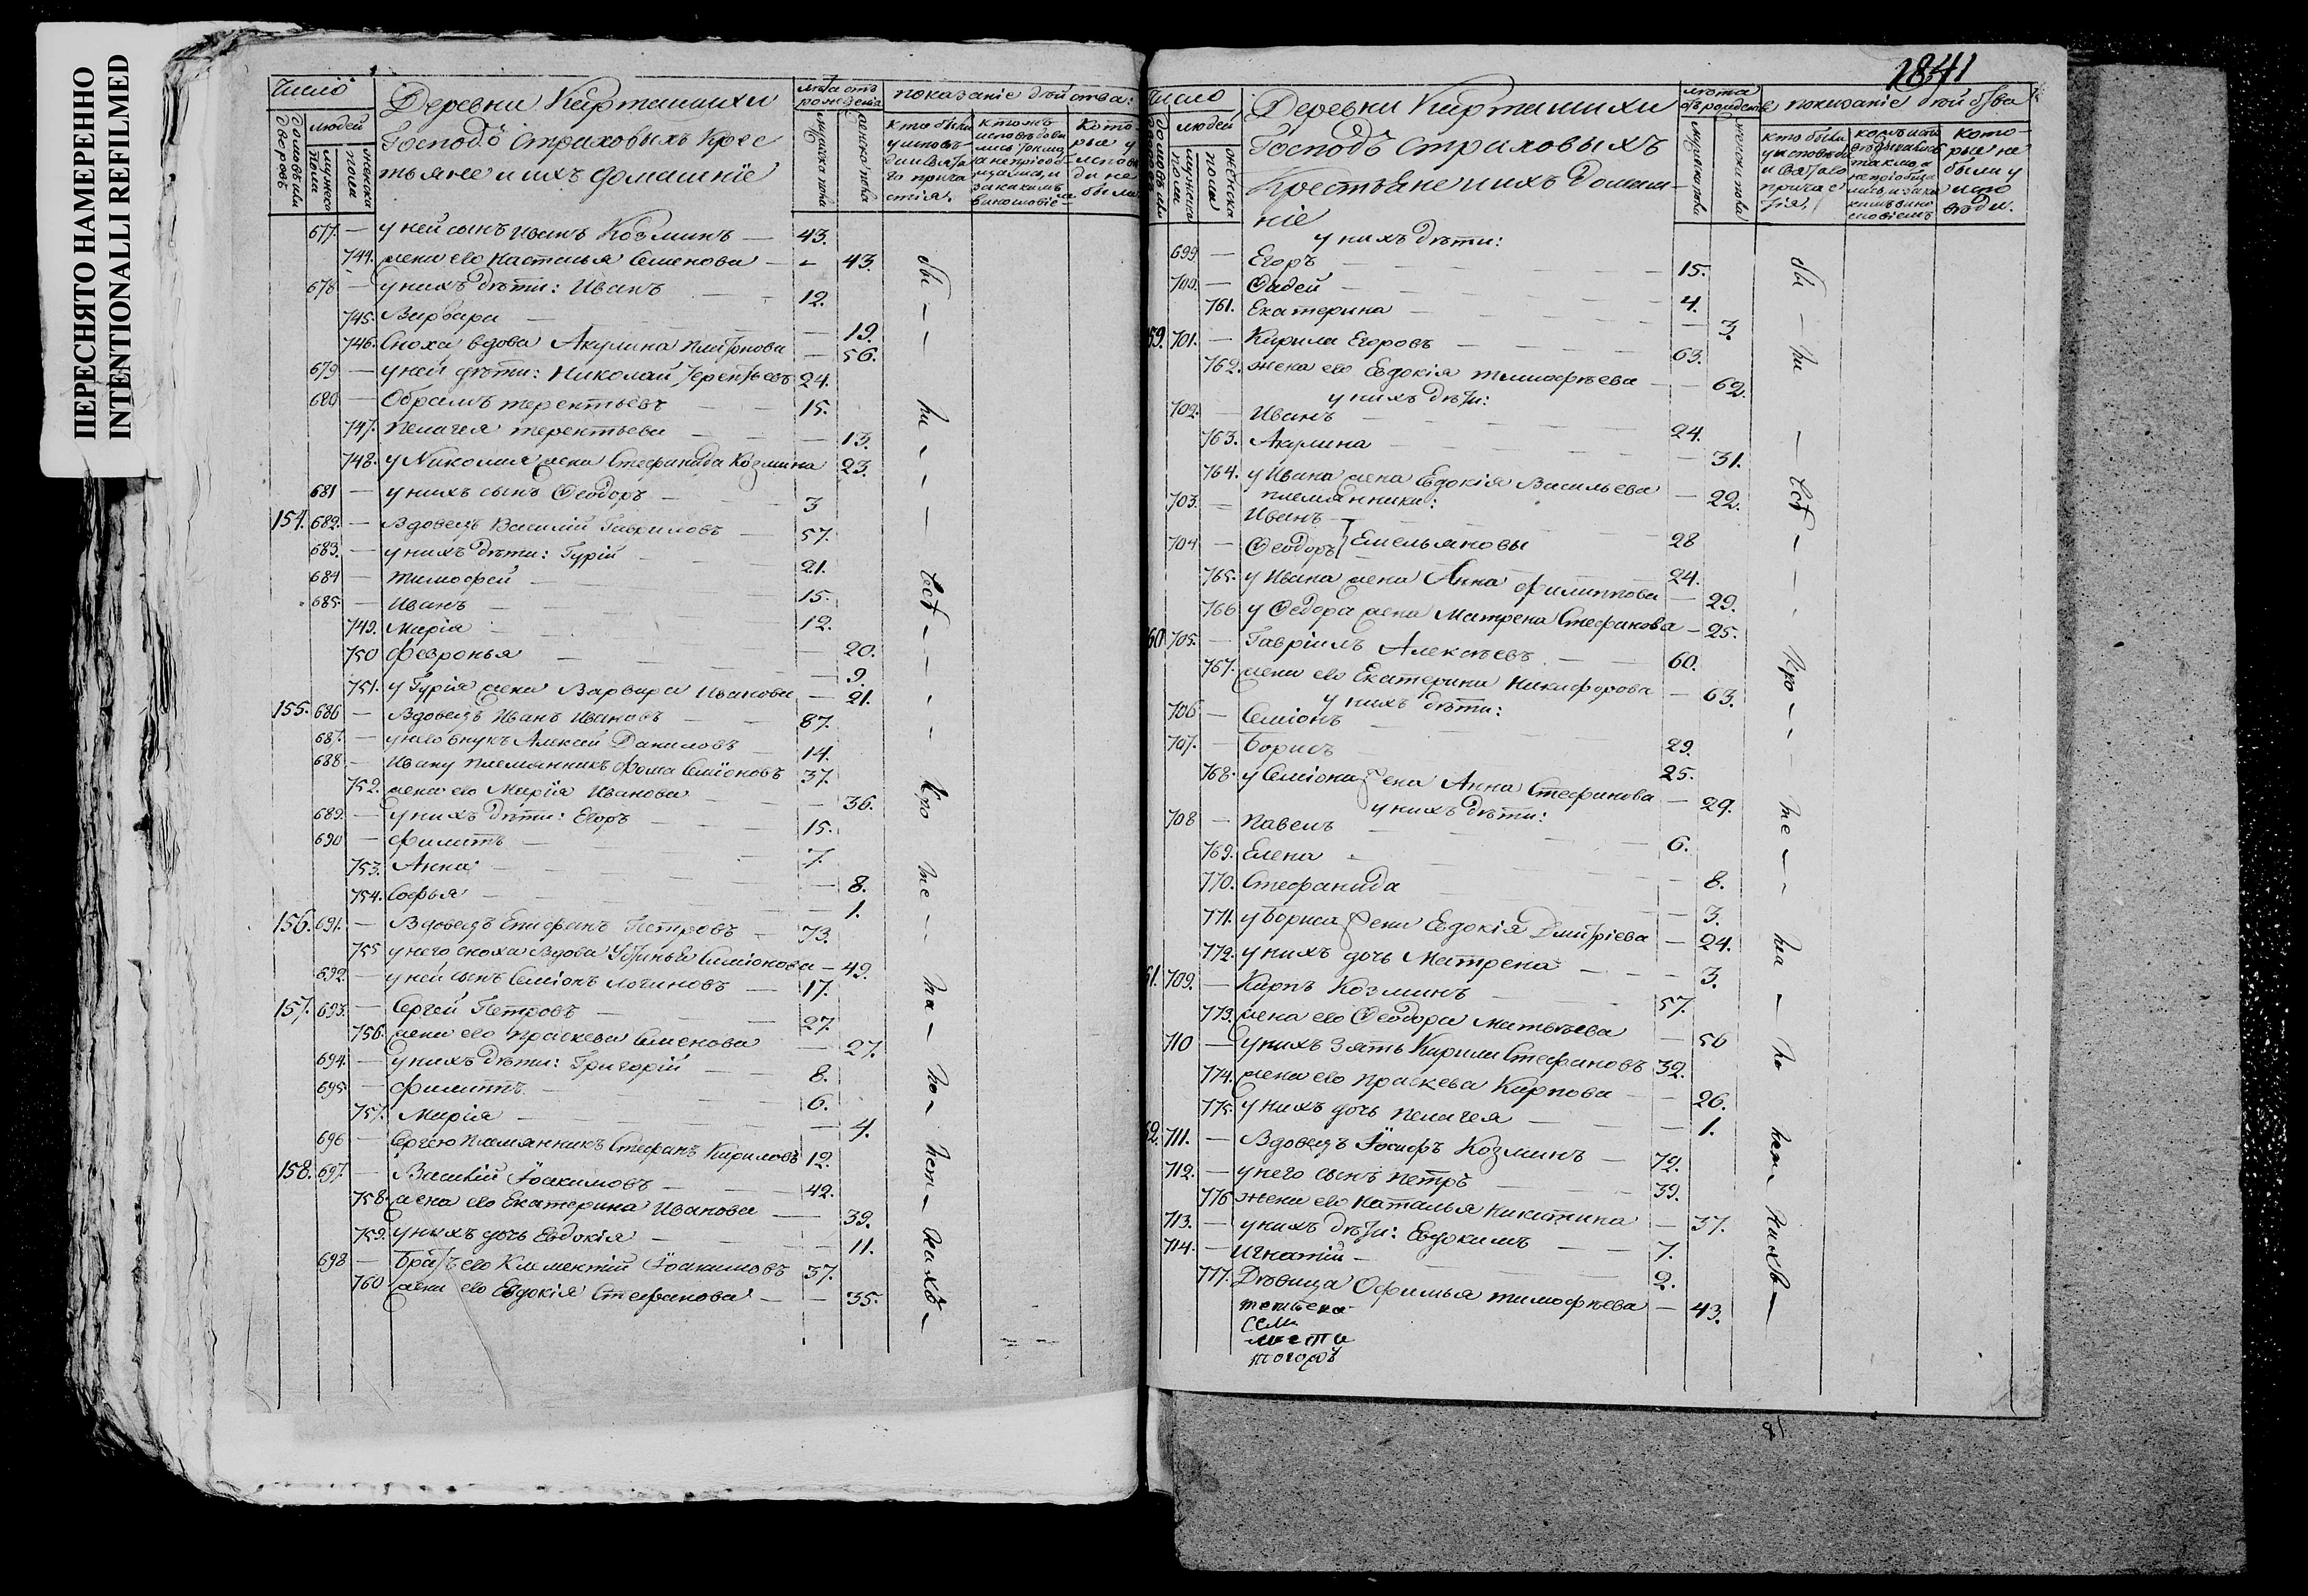 ПЕРЕСНЯТО НАМЕРЕННО
INTENTIONALLI REFILMED
Число
Деревни Карташихи
лѣта отъ рожденія
показаніе дѣйства:
людей
Господъ Страховыхъ Крес
тьяне и ихъ домашніе
677. — у ней сынъ Иванъ Козминъ — 43.
744. жена его Настасья Семенова — 43.
678 — у нихъ дѣти: Иванъ 12.
745. Варвара — 19.
746. Сноха вдова Акулина Платонова — 56.
679 — у ней дѣти: Николай Терентьевъ 24.
680 — Обрамъ терентьевъ 15.
747. Пелагея терентьева — 13.
748. у Николая жена Стефанида Козмина 23.
681 — у нихъ сынъ Ѳеодоръ 3
154. 682. — Вдовецъ Василій Гавриловъ 57.
683. — у нихъ дѣти: Гурій 21.
684 — тимофей 15.
685. — Иванъ 12.
749. Марія — 20.
750 февронья — 9.
751. у Гурія жена Варвара Иванова — 21.
155. 686 — Вдовецъ Иванъ Ивановъ 87.
687. — у него внукъ Алексей Даниловъ 14.
688 — Ивану племянникъ Фома Семіоновъ 37.
752. жена его Марія Иванова — 36.
689. — у нихъ дѣти: Егоръ 15.
690 — филиппъ 7.
753. Анна — 8.
754. Софья — 1.
156. 691. — Вдовецъ Епифанъ Петровъ 73.
755 у него сноха вдова Устинья Симіонова — 49.
692 — у ней сынъ Семіонъ логиновъ 17.
157. 693. — Сергей Петровъ 27.
756. жена его праскева Семенова — 27.
694. — у нихъ дѣти: Григорій 8.
695. — филиппъ 6.
757. Марія — 4.
696 — Сергею племянникъ Стефанъ Кириловъ 12.
158. 697. — Василій Іоакимовъ 42.
758. жена его Екатерина Иванова — 39.
759. у нихъ дочь Евдокія — 11.
698 — братъ его Климентій Іоакимовъ 37.
760 жена его Евдокія Стефанова — 35.
бы — ли — Исп — ко — те — па — по — нем — кихъ —
1841
Число
Деревни Карташихи
лѣта отъ рожденія
показаніе дѣйства
людей
Господъ Страховыхъ
Крестьяне и ихъ домаш-
ніе
у нихъ дѣти:
699 — Егоръ 15.
700. — Ѳадей 4.
761. Екатерина — 3.
59. 701. — Кирила Егоровъ 63.
762. жена его Евдокія тимофѣева — 62.
у нихъ дѣти:
702. — Иванъ 24.
763. Акулина — 31.
764. у Ивана жена Евдокія Васильева — 22.
племянники:
703. — Иванъ 28
704 — Ѳеодоръ } Емельяновы 24.
765. у Ивана жена Анна филиппова — 29.
766 у Ѳедора жена Матрена Стефанова — 25.
60 705. — Гавріилъ Алексѣевъ 60.
767. жена его Екатерина Никифорова — 63.
у нихъ дѣти:
706 — Семіонъ 29.
707. — Борисъ 25.
768. у Семіона жена Анна Стефанова — 29.
у нихъ дѣти:
708 — Павелъ 6.
769. Елена — 8.
770. Стефанида — 3.
771. у Бориса жена Евдокія Дмитріева — 24.
772. у нихъ дочь Матрена — 3.
61. 709. — Карпъ Козминъ 57.
773. жена его Ѳеодора Матвѣева — 56
710 — у нихъ зять Кирила Стефановъ 32.
774. жена его праскева Карпова — 26.
775. у нихъ дочь пелагея — 1.
62. 711. — Вдовецъ Іосифъ Козминъ — 72.
712. — у него сынъ Петръ 39.
776 жена его Наталья Никитина — 37.
713. — у нихъ дѣти: Евдокимъ 7.
714. — Игнатій 2.
777. Дѣвица Офимья тимофѣева — 43.